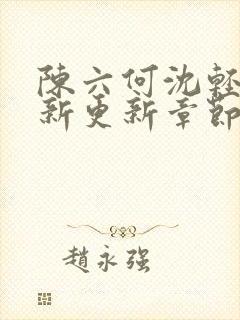 陳六何沈輕
新更新章節
趙永强